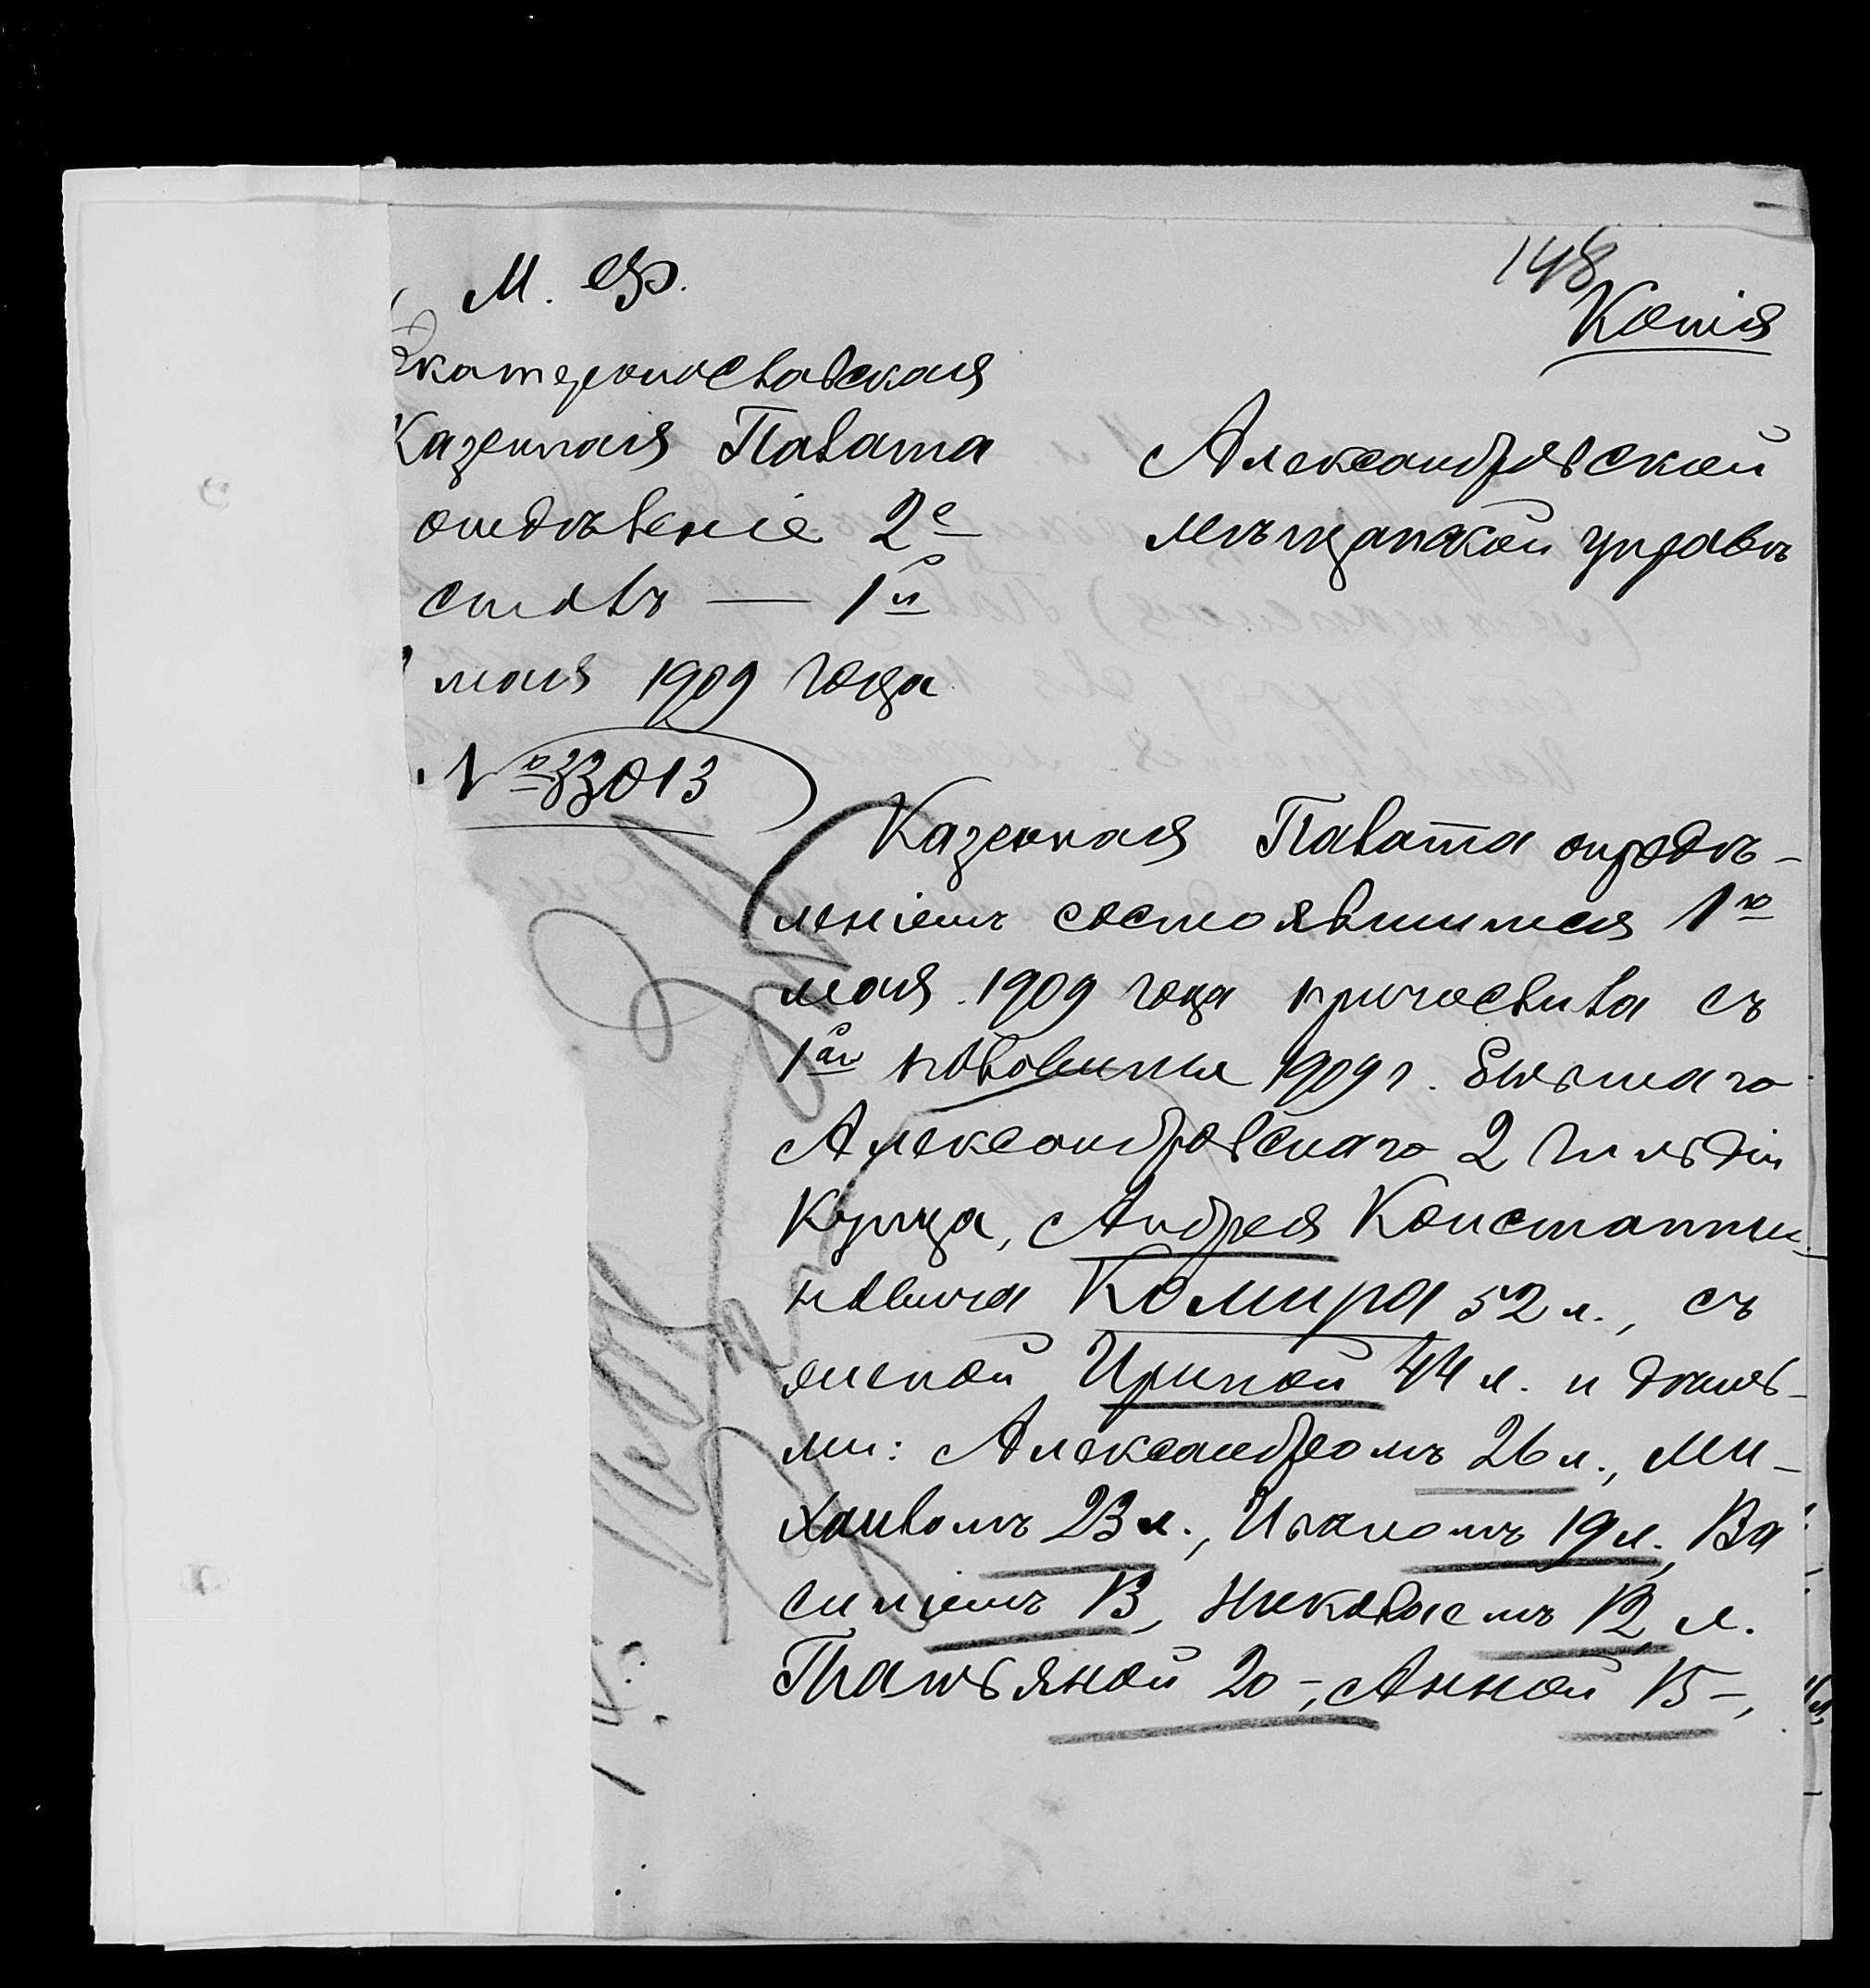 148
Копія
М. Ф.
Екатеринославская
Казенная Палата
отдѣленіе 2е
столъ — 1й
мая 1909 года
№ 33013
Александровской
мѣщанской управѣ
Казенная Палата опредѣ-
леніемъ состоявшимся 1го
мая 1909 года причислила съ
1ой половины 1909 г. бывшаго
Александровскаго 2 гильдіи
Купца, Андрея Константи-
новича Комира 52 л., съ
женой Ириной 44 л. и дѣтьь-
ми: Александромъ 26 л., Ми-
хаиломъ 23 л., Иваномъ 19 л., Ва
силіемъ 13, Николаемъ 12 л.
Татьяной 20 -, Анной 15 -,